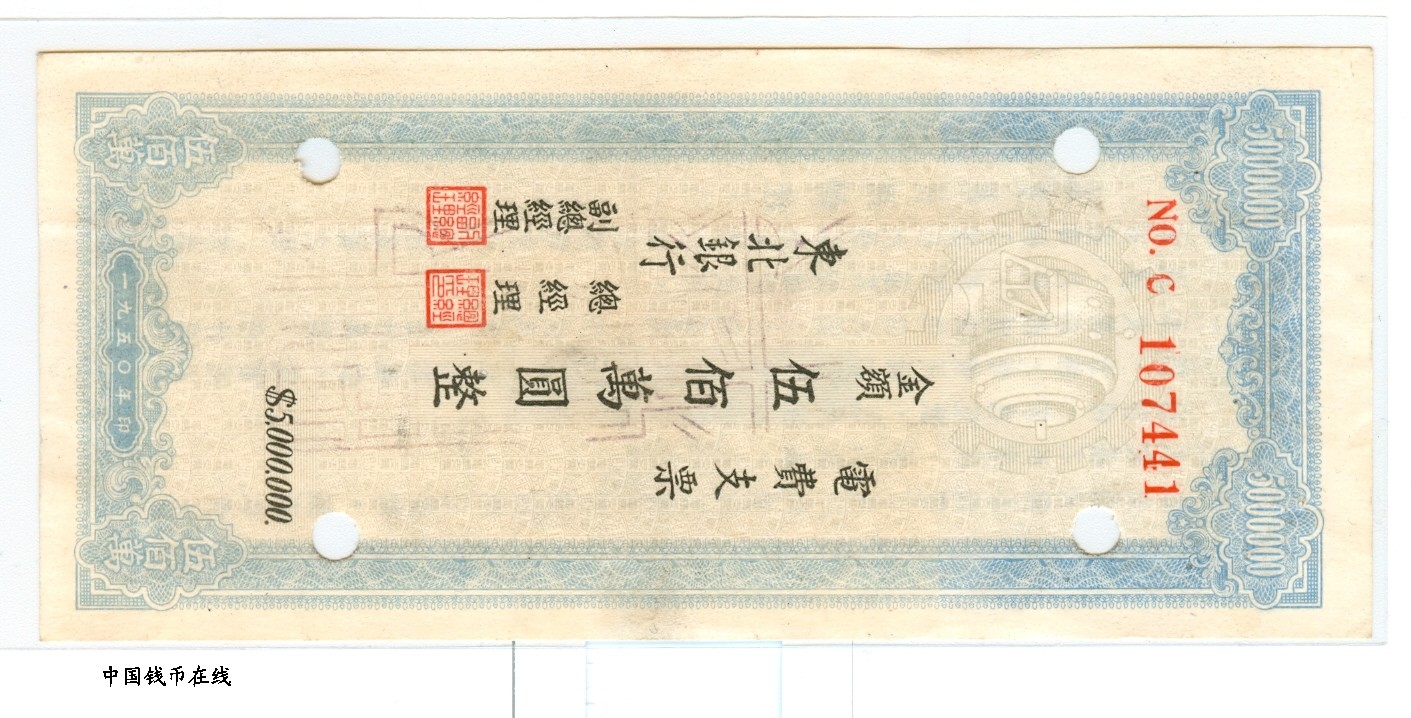 5000000
5000000
NO. C 107441
電費支票
金額伍佰萬圓整
東北銀行
總經理
副總經理
$5,000,000.
伍佰萬
伍佰萬
一九五〇年印
中国钱币在线